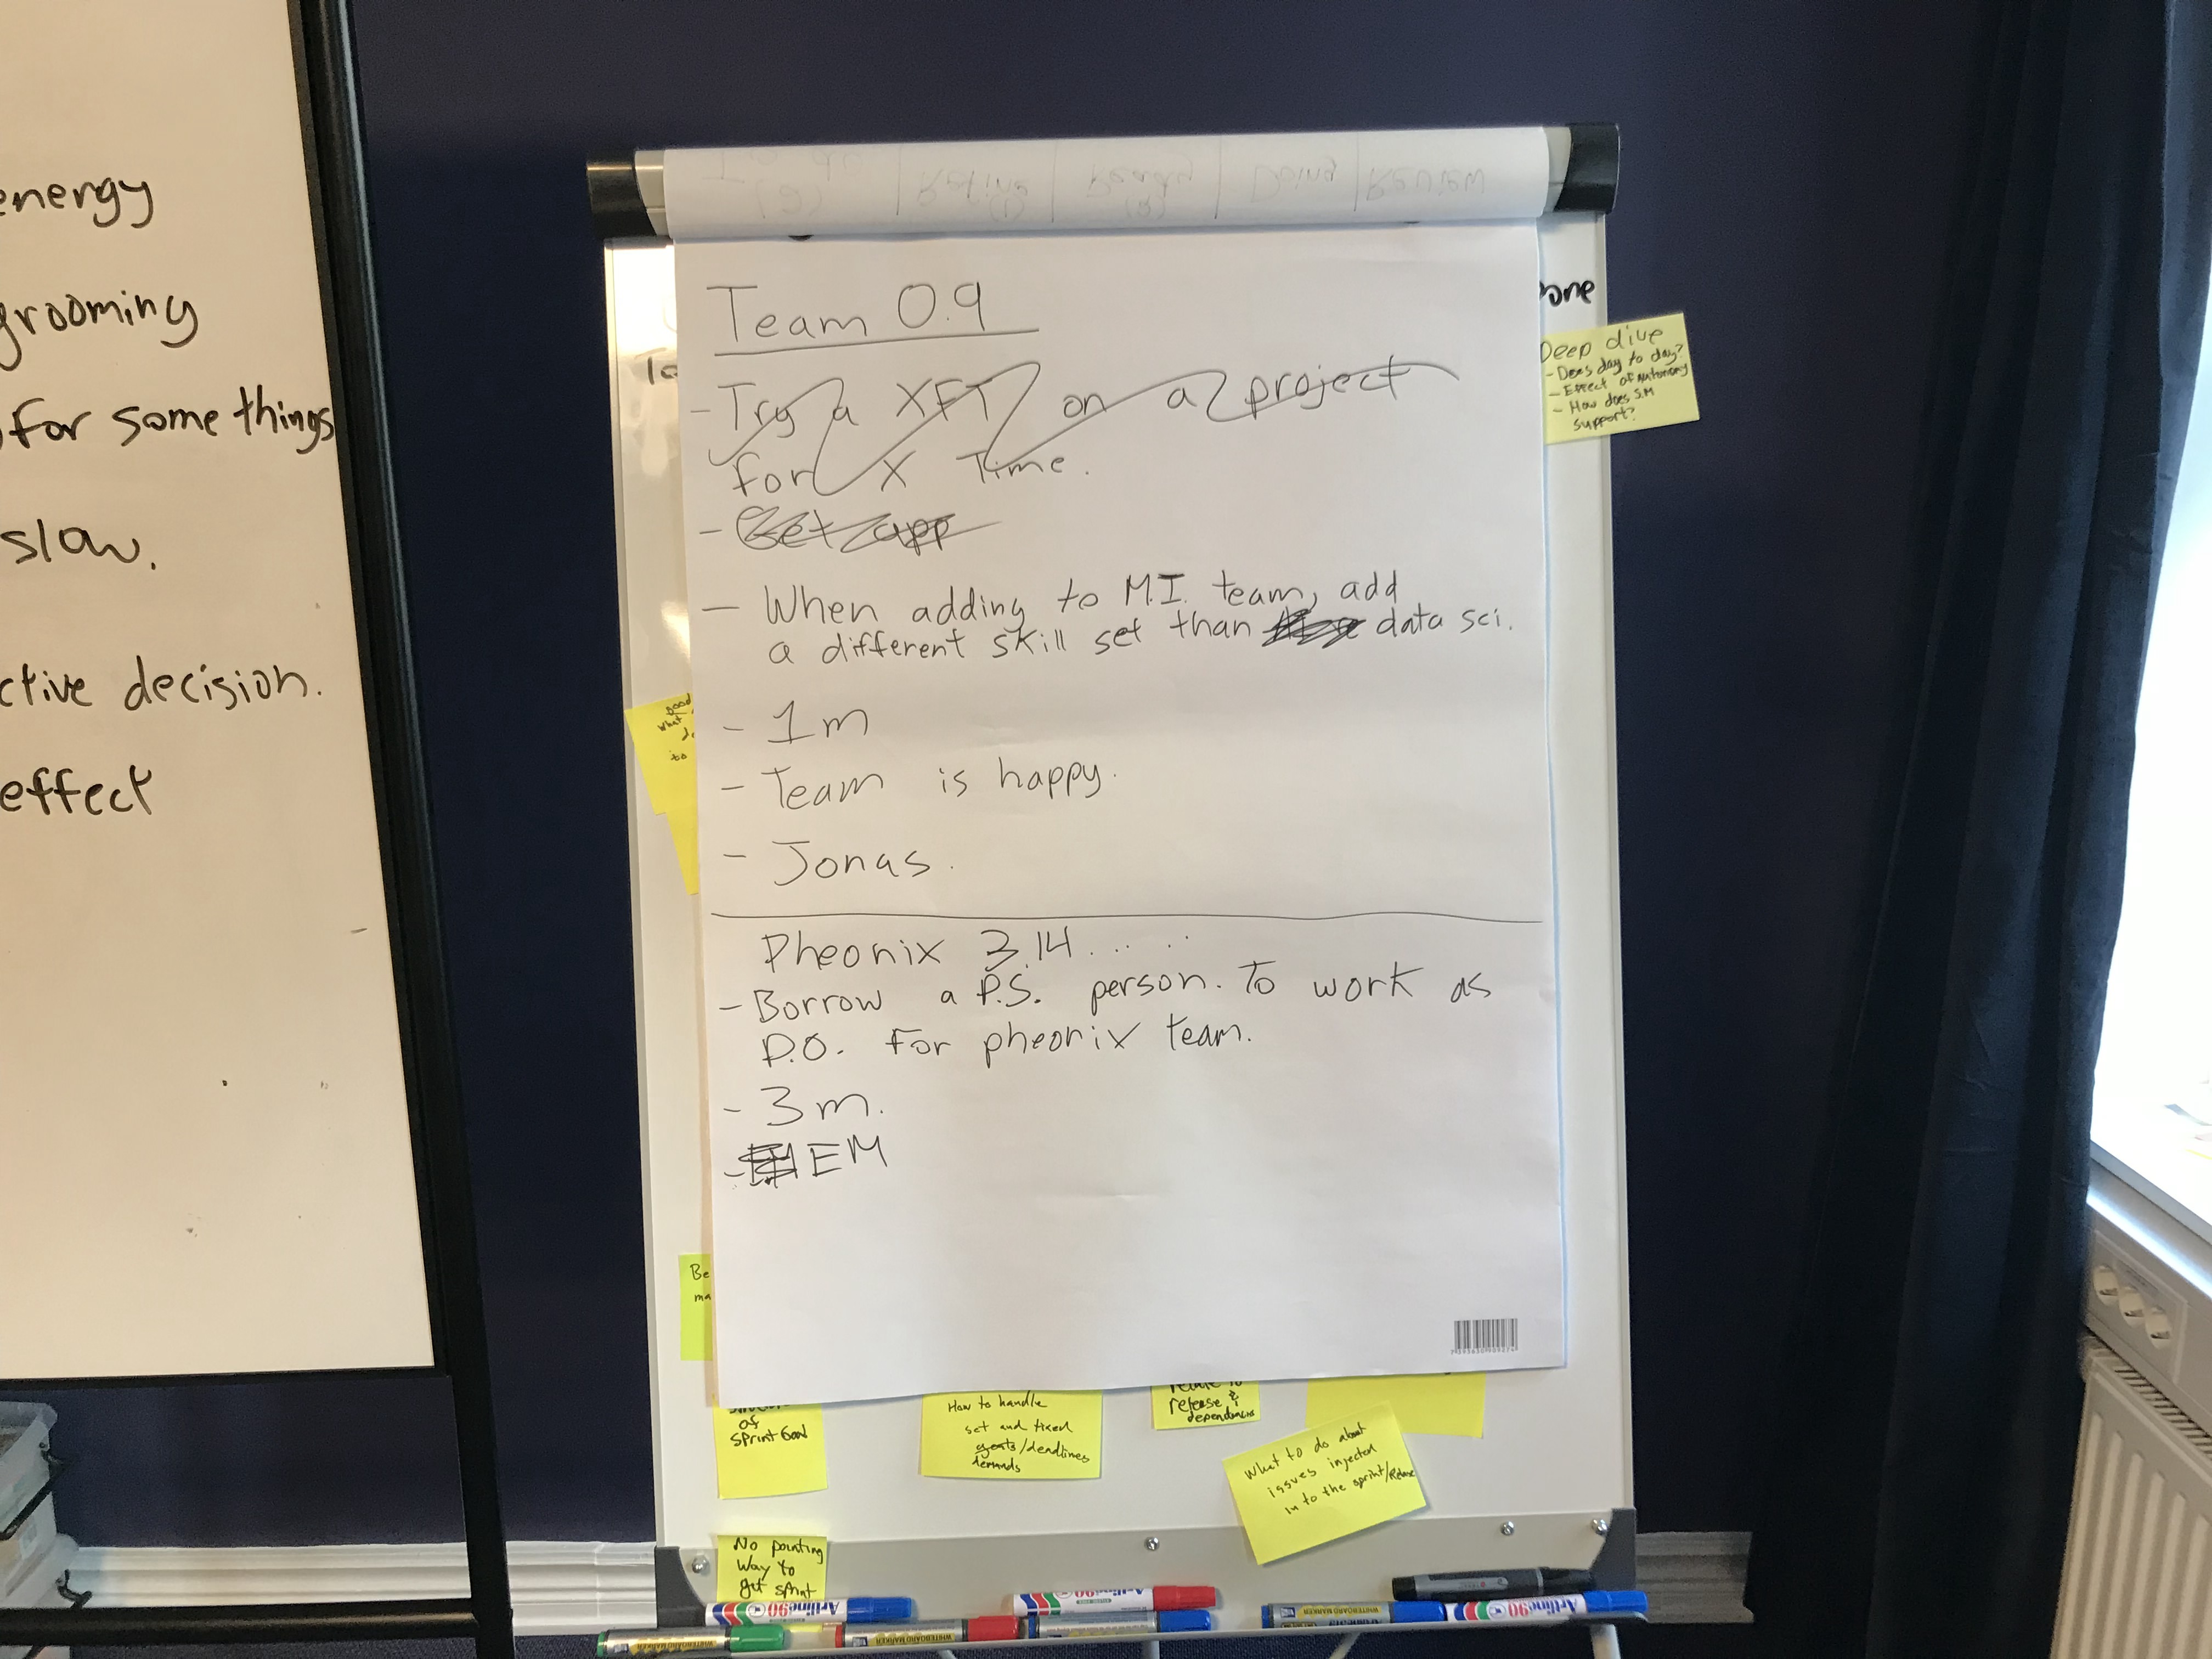 energy
grooming
for some things
slow.
decision.
effect
Refine
Ready
Doing
Review
Team 0.9
- Try a XFT on a project
for X Time.
- Get app
- When adding to M.I. team, add
a different skill set than data sci.
- 1m
- Team is happy.
- Jonas.
Pheonix 3.14.....
- Borrow a P.S. person. To work as
P.O. for pheonix team.
- 3m.
- EM
Deep dive
- Does day to day?
- Effect of Autonomy
- How does SM
support?
good
what
to
Be
ma
of
Sprint Goal
How to handle
set and fixed
goals/deadlines
demands
release &
dependencies
What to do about
issues injected
in to the sprint/Release
No pointing
way to
get sprint
Artline 90
WHITEBOARD MARKER
WHITEBOARD MARKER
Artline 90
WHITEBOARD MARKER
Artline 90
7393630909274